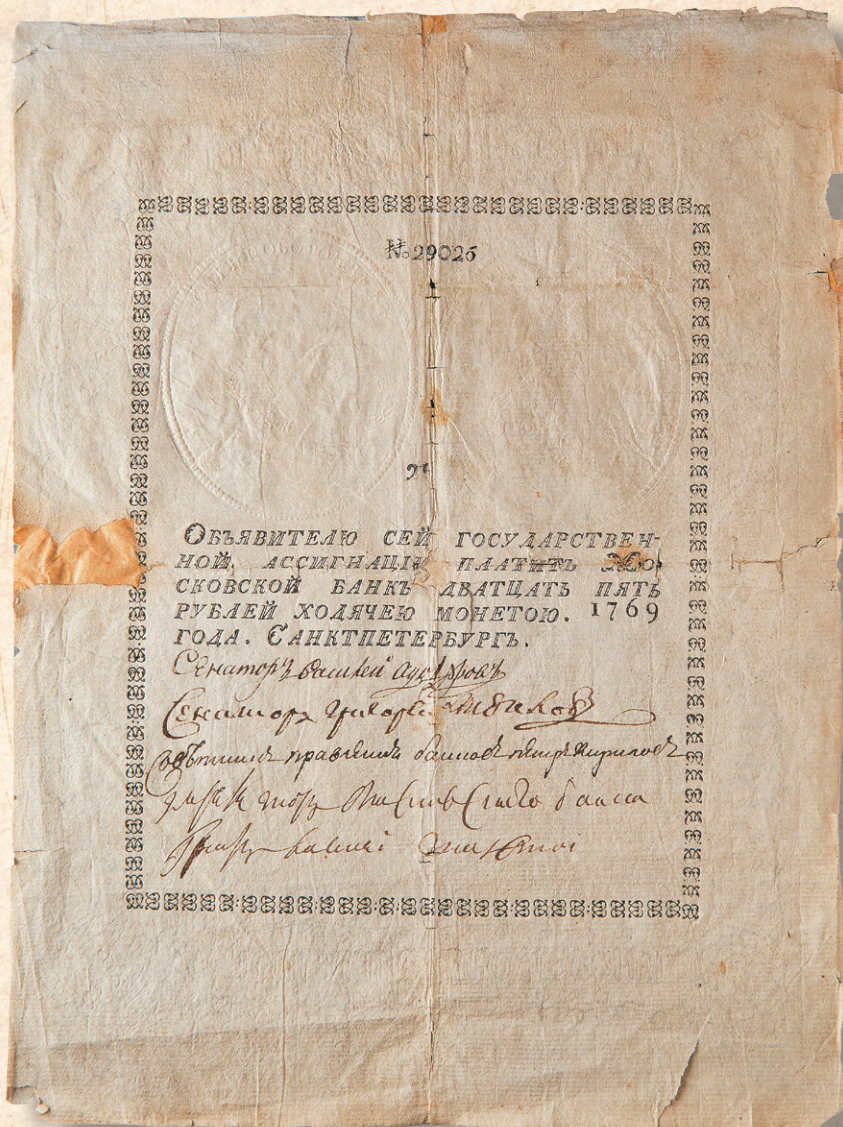 № 29025
ОБЪЯВИТЕЛЮ СЕЙ ГОСУДАРСТВЕН-
НОЙ АССИГНАЦІИ ПЛАТИТЪ МО-
СКОВСКОЙ БАНКЪ ДВАТЦАТЬ ПЯТЬ
РУБЛЕЙ ХОДЯЧЕЮ МОНЕТОЮ. 1769
ГОДА. САНКТПЕТЕРБУРГЪ.
Сенаторъ
Сенаторъ
советникъ правленія банковъ петръ кириловъ
банка